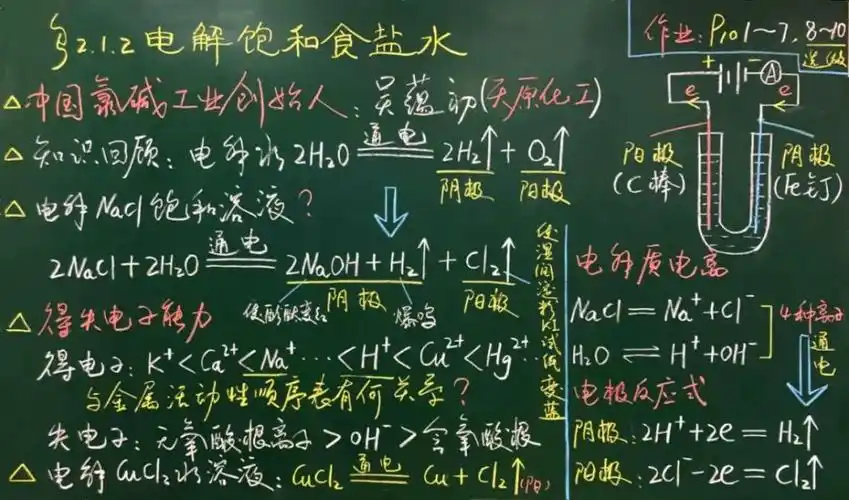 §2.1.2 电解饱和食盐水
作业：P10 1~7, 8~10
选做
△ 中国氯碱工业创始人：吴蕴初(天原化工)
△ 知识回顾：电解水 2H₂O 通电 ═══ 2H₂↑ + O₂↑
阴极 阳极
△ 电解NaCl饱和溶液？
2NaCl+2H₂O 通电 ═══ 2NaOH+H₂↑ + Cl₂↑
使酚酞变红 阴极 爆鸣 阳极
使湿润淀粉KI试纸变蓝
△ 得失电子能力
得电子：K⁺<Ca²⁺<Na⁺…<H⁺<Cu²⁺<Hg²⁺…
与金属活动性顺序表有何关系？
失电子：无氧酸根离子>OH⁻>含氧酸根
△ 电解CuCl₂水溶液：CuCl₂ 通电 ═══ Cu+Cl₂↑(阳)
+ − A
e e
阳极 阴极
(C棒) (Fe钉)
电解质电离
NaCl=Na⁺+Cl⁻
H₂O⇌H⁺+OH⁻
4种离子
通电
电极反应式
阴极：2H⁺+2e=H₂↑
阳极：2Cl⁻-2e=Cl₂↑